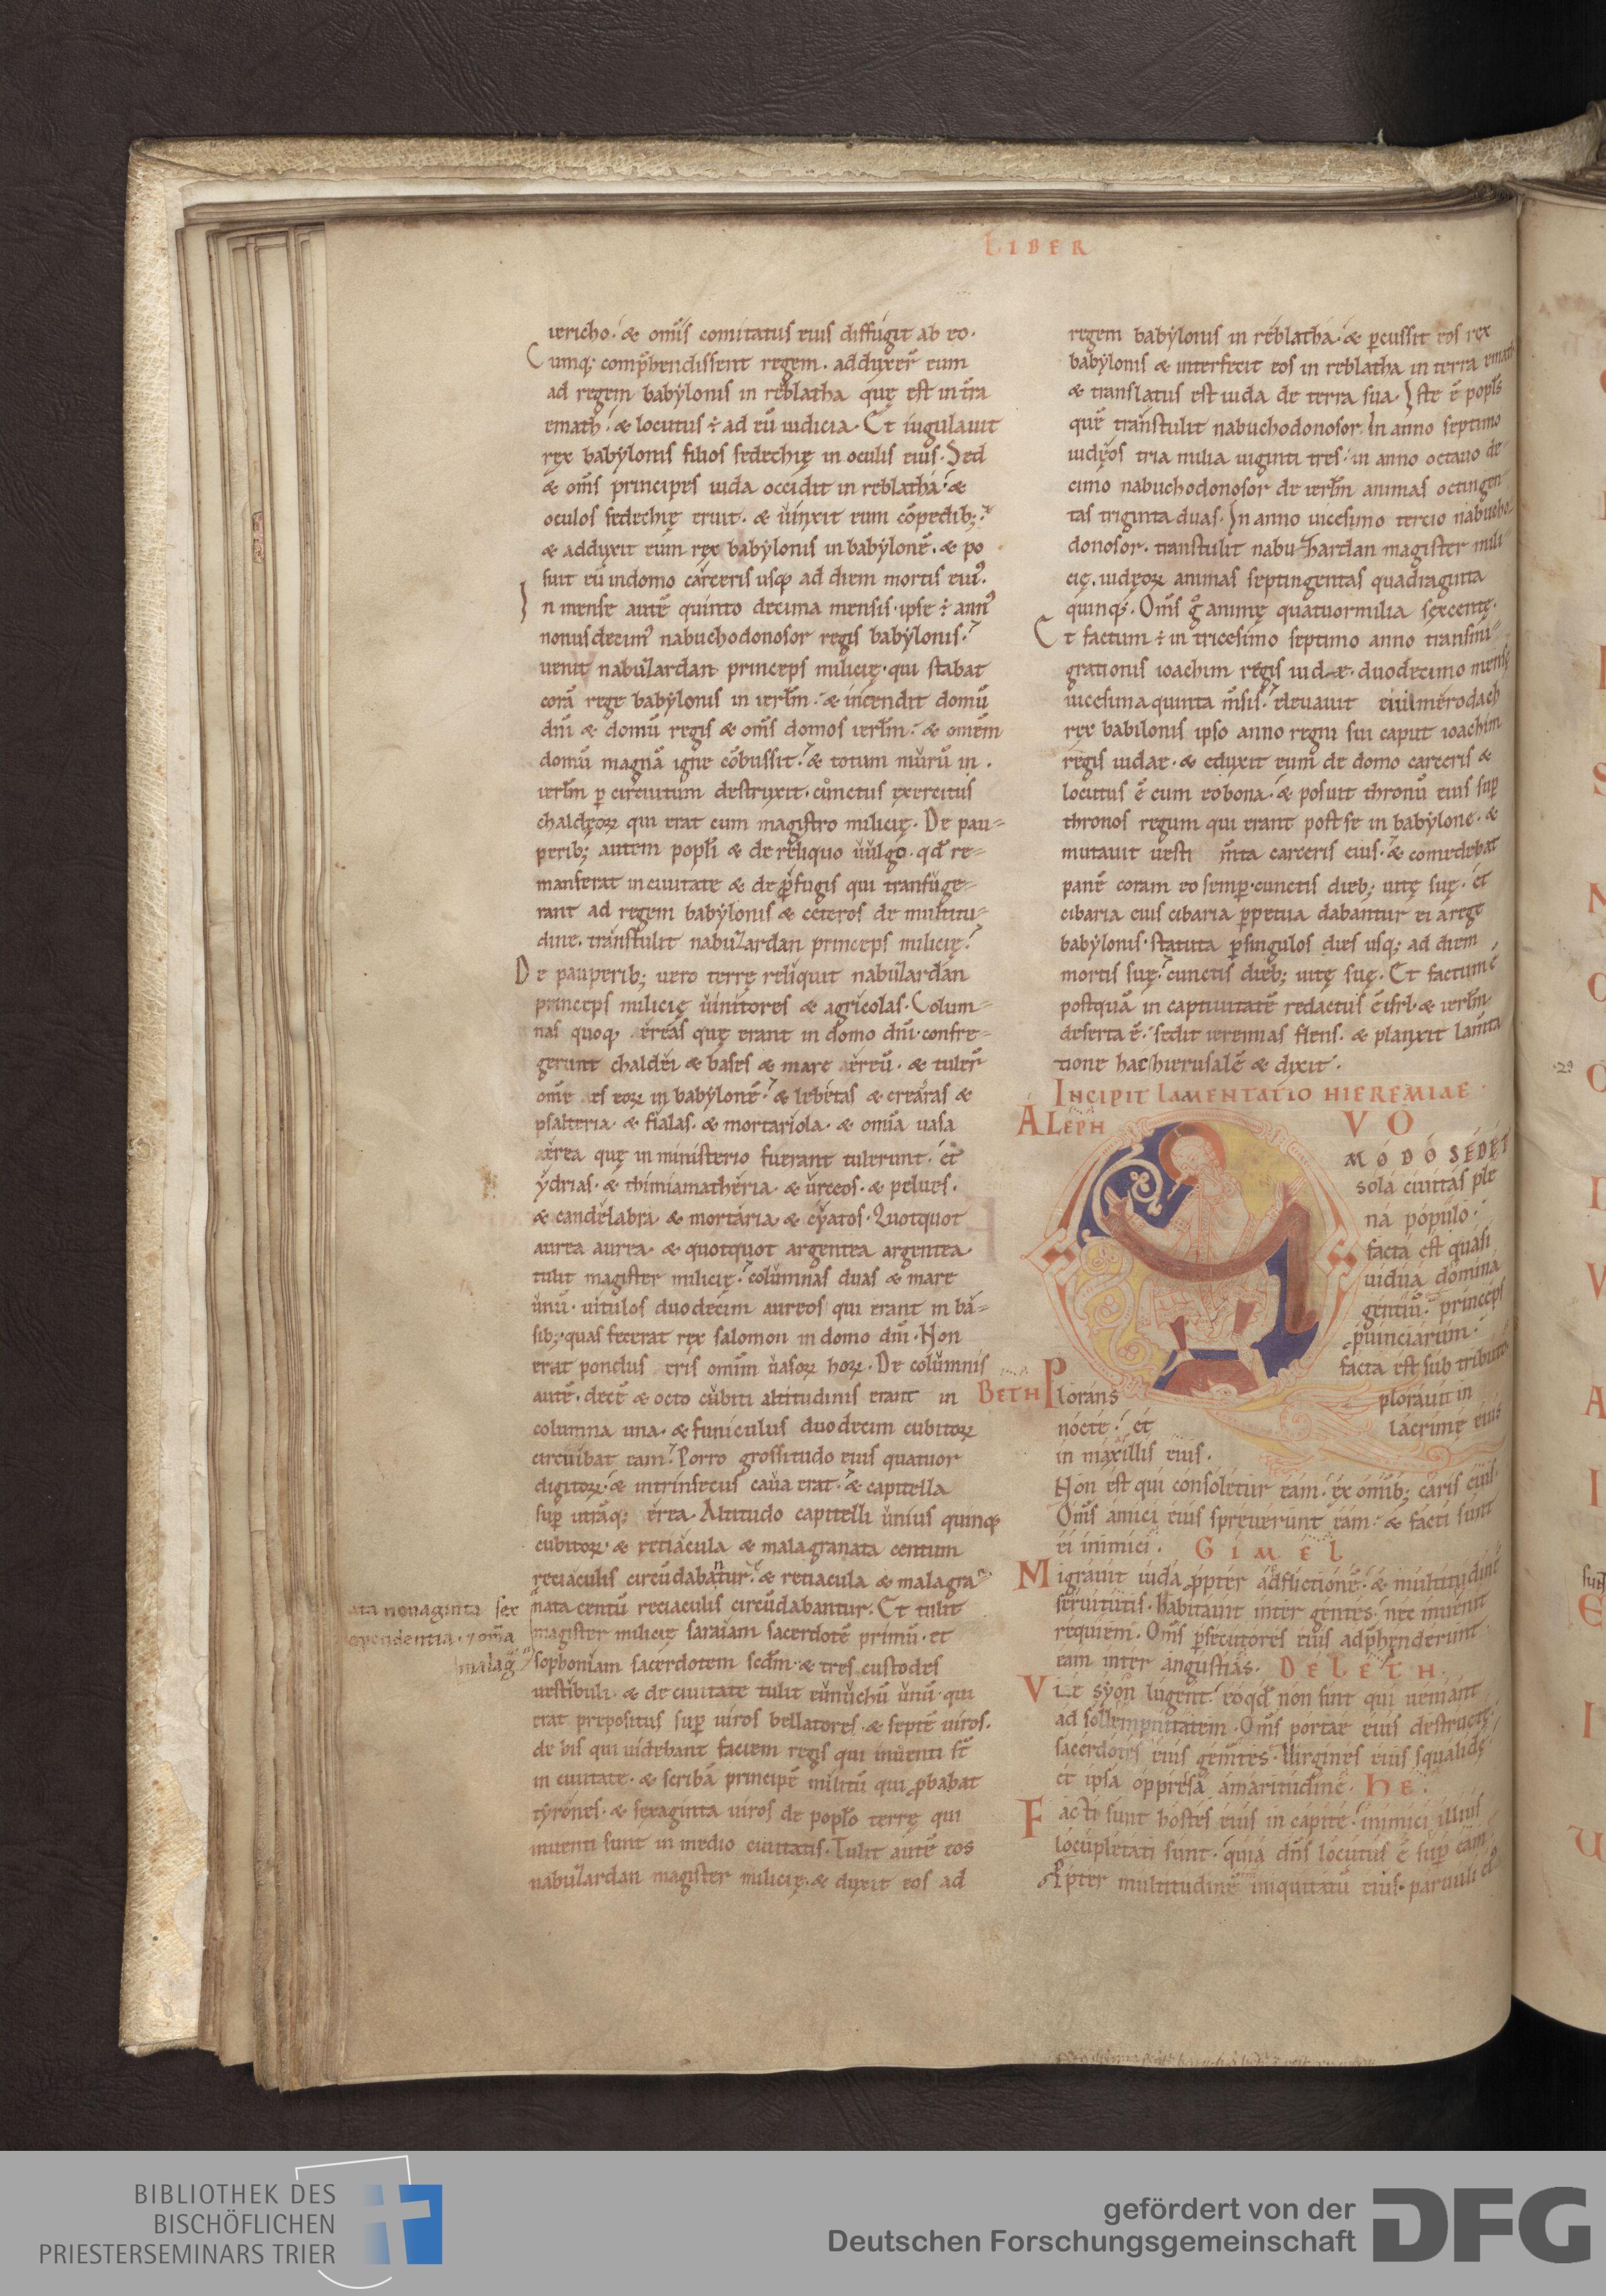 LIBER
iericho. & om̅is comitatus eius diffugit ab eo.
Cumq; comp̅hendissent regem. adduxer̅ eum
ad regem babylonis in reblatha quę est in t̅ra
emath. & locutus ÷ ad eu̅ iudicia. Et iugulauit
rex babylonis filios sedechię in oculis eius. Sed
& om̅s principes iuda occidit in reblatha. &
oculos sedechię eruit. & uinxit eum co̅pedib;.
& adduxit eum rex babylonis in babylone̅. & po
suit eu̅ in domo carceris usq; ad diem mortis eius.
In mense aute̅ quinto decima mensis. ipse ÷ ann9
nonusdecim9 nabuchodonosor regis babylonis.
uenit nabuzardan princeps milicię. qui stabat
cora̅ rege babylonis in ierl̅m. & incendit domu̅
dn̅i & domu̅ regis & om̅s domos ierl̅m. & om̅em
domu̅ magna̅ igne co̅bussit. & totum muru̅ in
ierl̅m p circuitum destruxit. cunctus exercitus
chaldęoꝝ qui erat cum magistro milicię. De pau-
perib; autem popl̅i & de reliquo uulgo. qd̅ re-
manserat in ciuitate & de p̅fugis qui transfuge-
rant ad regem babylonis & ceteros de multitu-
dine. transtulit nabuzardan princeps milicię.
De pauperib; uero terrę reliquit nabuzardan
princeps milicię uinitores & agricolas. Colum-
nas quoq; aereas quę erant in domo dn̅i. confre-
gerunt chaldei & bases & mare aereu̅. & tuler̅
om̅e aes eoꝝ in babylone̅. & lebetas & creagras &
psalteria. & fialas. & mortariola. & om̅ia uasa
aerea quę in ministerio fuerant tulerunt. et
ydrias. & thimiamatheria. & urceos. & pelues.
& candelabra. & mortaria. & cyatos. Quotquot
aurea aurea. & quotquot argentea argentea
tulit magister milicię. columnas duas & mare
unu̅. uitulos duodecim aureos qui erant in ba-
sib;. quas fecerat rex salomon in domo dn̅i. Non
erat pondus eris omium uasoꝝ hoꝝ. De columnis
aute̅. dece̅ & octo cubiti altitudinis erant in
columna una. & funiculus duodecim cubitoꝝ
circuibat eam. Porro grossitudo eius quatuor
digitoꝝ. & intrinsecus caua erat. & capitella
sup utra̅q; erea. Altitudo capitelli unius quinq;
cubitoꝝ. & retiacula & malagranata centum
reciaculis circu̅dabantur. & retiacula & malagra
nata centu̅ reciaculis circu̅dabantur. Et tulit
ata nonaginta sex
pendentia. 7 om̅a
malag
magister milicię saraiam sacerdote̅ primu̅. et
sophoniam sacerdotem scd̅m. & tres custodes
uestibuli. & de ciuitate tulit eunuchu̅ unu̅. qui
erat prepositus sup uiros bellatores. & septe̅ uiros.
de his qui uidebant faciem regis qui inuenti st̅
in ciuitate. & scriba̅ principe̅ militu̅ qui p̅babat
tyrones. & sexaginta uiros de popl̅o terrę qui
inuenti sunt in medio ciuitatis. Tulit aute̅ eos
nabuzardan magister milicię. & duxit eos ad
regem babylonis in reblatha. & p̅cussit eos rex
babylonis & interfecit eos in reblatha in terra emath
& translatus est iuda de terra sua. Iste e̅ popl̅s
que̅ transtulit nabuchodonosor. In anno septimo
iudęos tria milia uiginti tres. in anno octauo de
cimo nabuchodonosor de ierl̅m animas octingen
tas triginta duas. In anno uicesimo tercio nabucho
donosor. transtulit nabuzardan magister mili
cię. iudęoꝝ animas septingentas quadraginta
quinq;. Om̅s g̅ animę quatuormilia sexcentę.
Et factum ÷ in tricesimo septimo anno transmi-
grationis ioachim regis iudae. duodecimo mense
uicesima quinta m̅sis. eleuauit euilmerodach
rex babilonis ipso anno regni sui caput ioachim
regis iudae. & eduxit eum de domo carceris &
locutus e̅ cum eo bona. & posuit thronu̅ eius sup
thronos regum qui erant post se in babylone. &
mutauit uesti m̅ta carceris eius. & comedebat
pane̅ coram eo semp. cunctis dieb; uitę suę. et
cibaria eius cibaria p̅petua dabantur ei a rege
babylonis. statuta p singulos dies usq; ad diem
mortis suę. cunctis dieb; uitę suę. Et factum e̅
postqua̅ in captiuitate̅ redactus e̅ isrl. & ierl̅m
deserta e̅. sedit ieremias flens. & planxit lam̅ta
tione hac hierusale̅ & dixit.
INCIPIT LAMENTATIO HIEREMIAE.
ALEPH
QVO
MODO SEDET
sola ciuitas ple
na populo.
facta est quasi
uidua domina
gentiu̅. princeps
puinciarum.
facta est sub tributo
BETH Plorans plorauit in
nocte. et lacrimę eius
in maxillis eius.
Non est qui consoletur eam. ex om̅ib; caris eius.
Om̅s amici eius spreuerunt eam. & facti sunt
ei inimici. GIMEL
Migrauit iuda p̅pter adflictione̅. & multitudine̅
seruitutis. Habitauit inter gentes. nec inuenit
requiem. Om̅s p̅secutores eius adp̅henderunt
eam inter angustias. DELETH.
Viae syon lugent. eo qd̅ non sint qui ueniant
ad sollempnitatem. Om̅s portae eius destructę.
sacerdotes eius gem̅tes. Uirgines eius squalidę
et ipsa oppressa amaritudine. HE.
Facti sunt hostes eius in capite. inimici illius
locupletati sunt. quia dn̅s locutus e̅ sup eam
Ppter multitudine̅ iniquitatu̅ eius. paruuli ei9
BIBLIOTHEK DES
BISCHÖFLICHEN
PRIESTERSEMINARS TRIER
gefördert von der
Deutschen Forschungsgemeinschaft
DFG